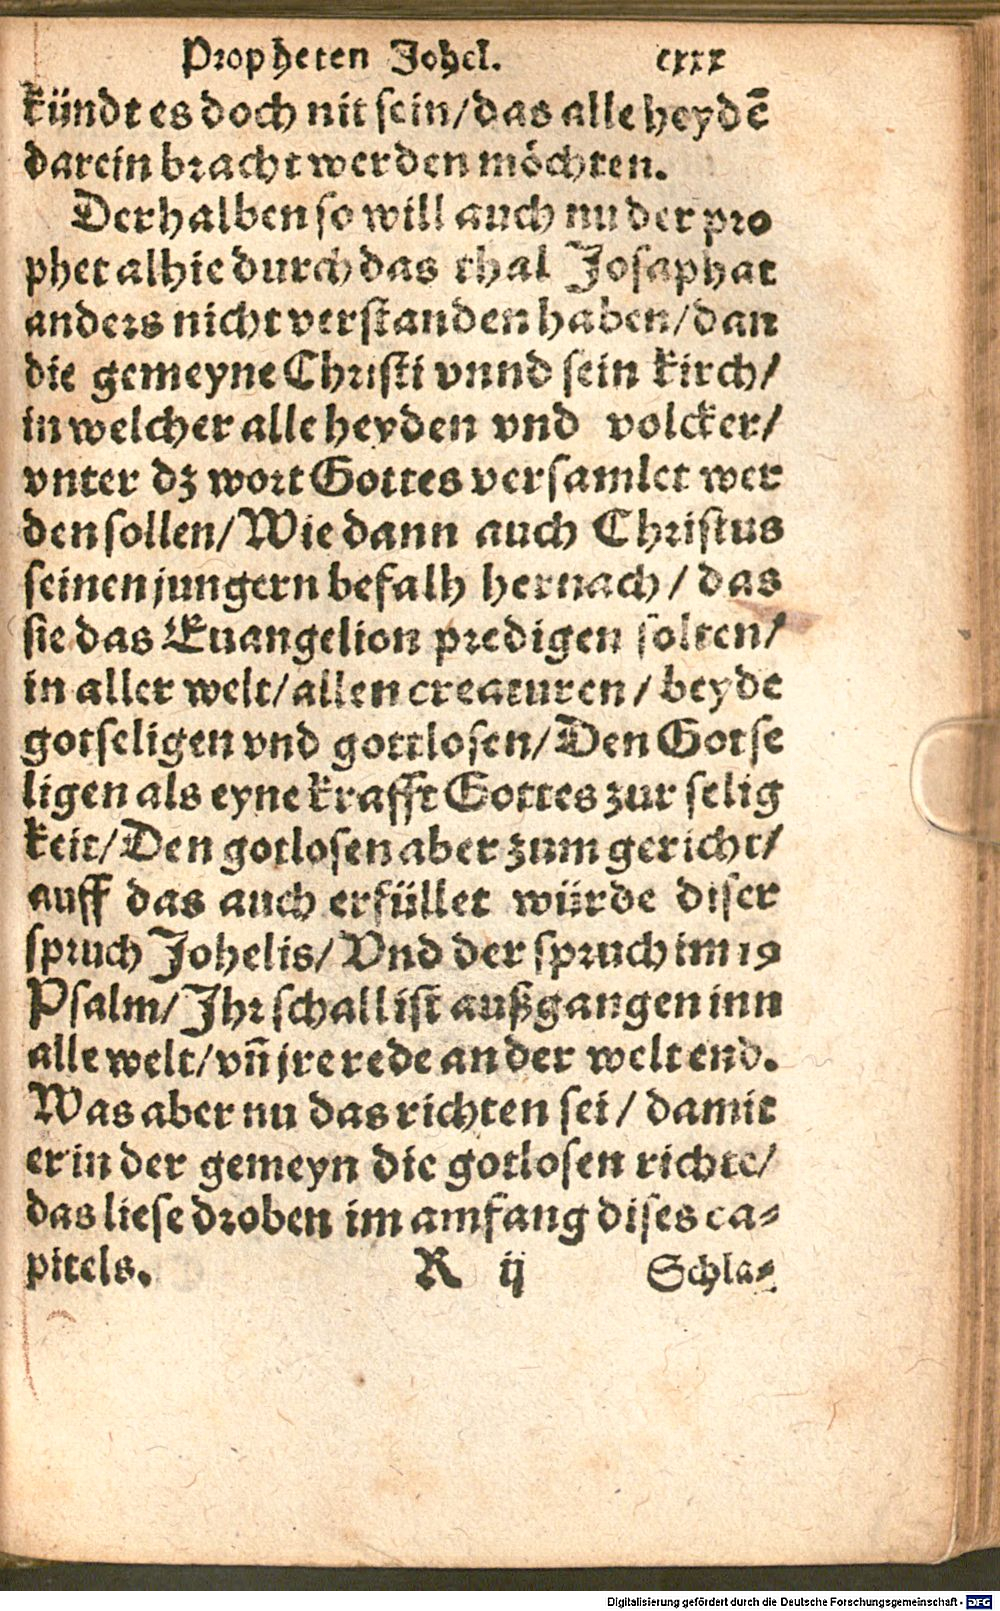 Propheten Johel. cxxx
kündt es doch nit sein/das alle heydē
darein bracht werden möchten.
Derhalben so will auch nu der pro
phet alhie durch das thal Josaphat
anders nicht verstanden haben/dan
die gemeyne Christi vnnd sein kirch/
in welcher alle heyden vnd volcker/
vnter dz wort Gottes versamlet wer
den sollen/Wie dann auch Christus
seinen jungern befalh hernach/ das
sie das Euangelion predigen solten/
in aller welt/allen creaturen/ beyde
gotseligen vnd gottlosen/Den Gotse
ligen als eyne krafft Gottes zur selig
keit/Den gotlosen aber zum gericht/
auff das auch erfüllet würde diser
spruch Johelis/Vnd der spruch im 19
Psalm/Jhr schall ist außgangen inn
alle welt/vñ jre rede an der welt end.
Was aber nu das richten sei/ damit
er in der gemeyn die gotlosen richte/
das liese droben im amfang dises ca-
pitels. R ij Schla-
Digitalisierung gefördert durch die Deutsche Forschungsgemeinschaft - DFG